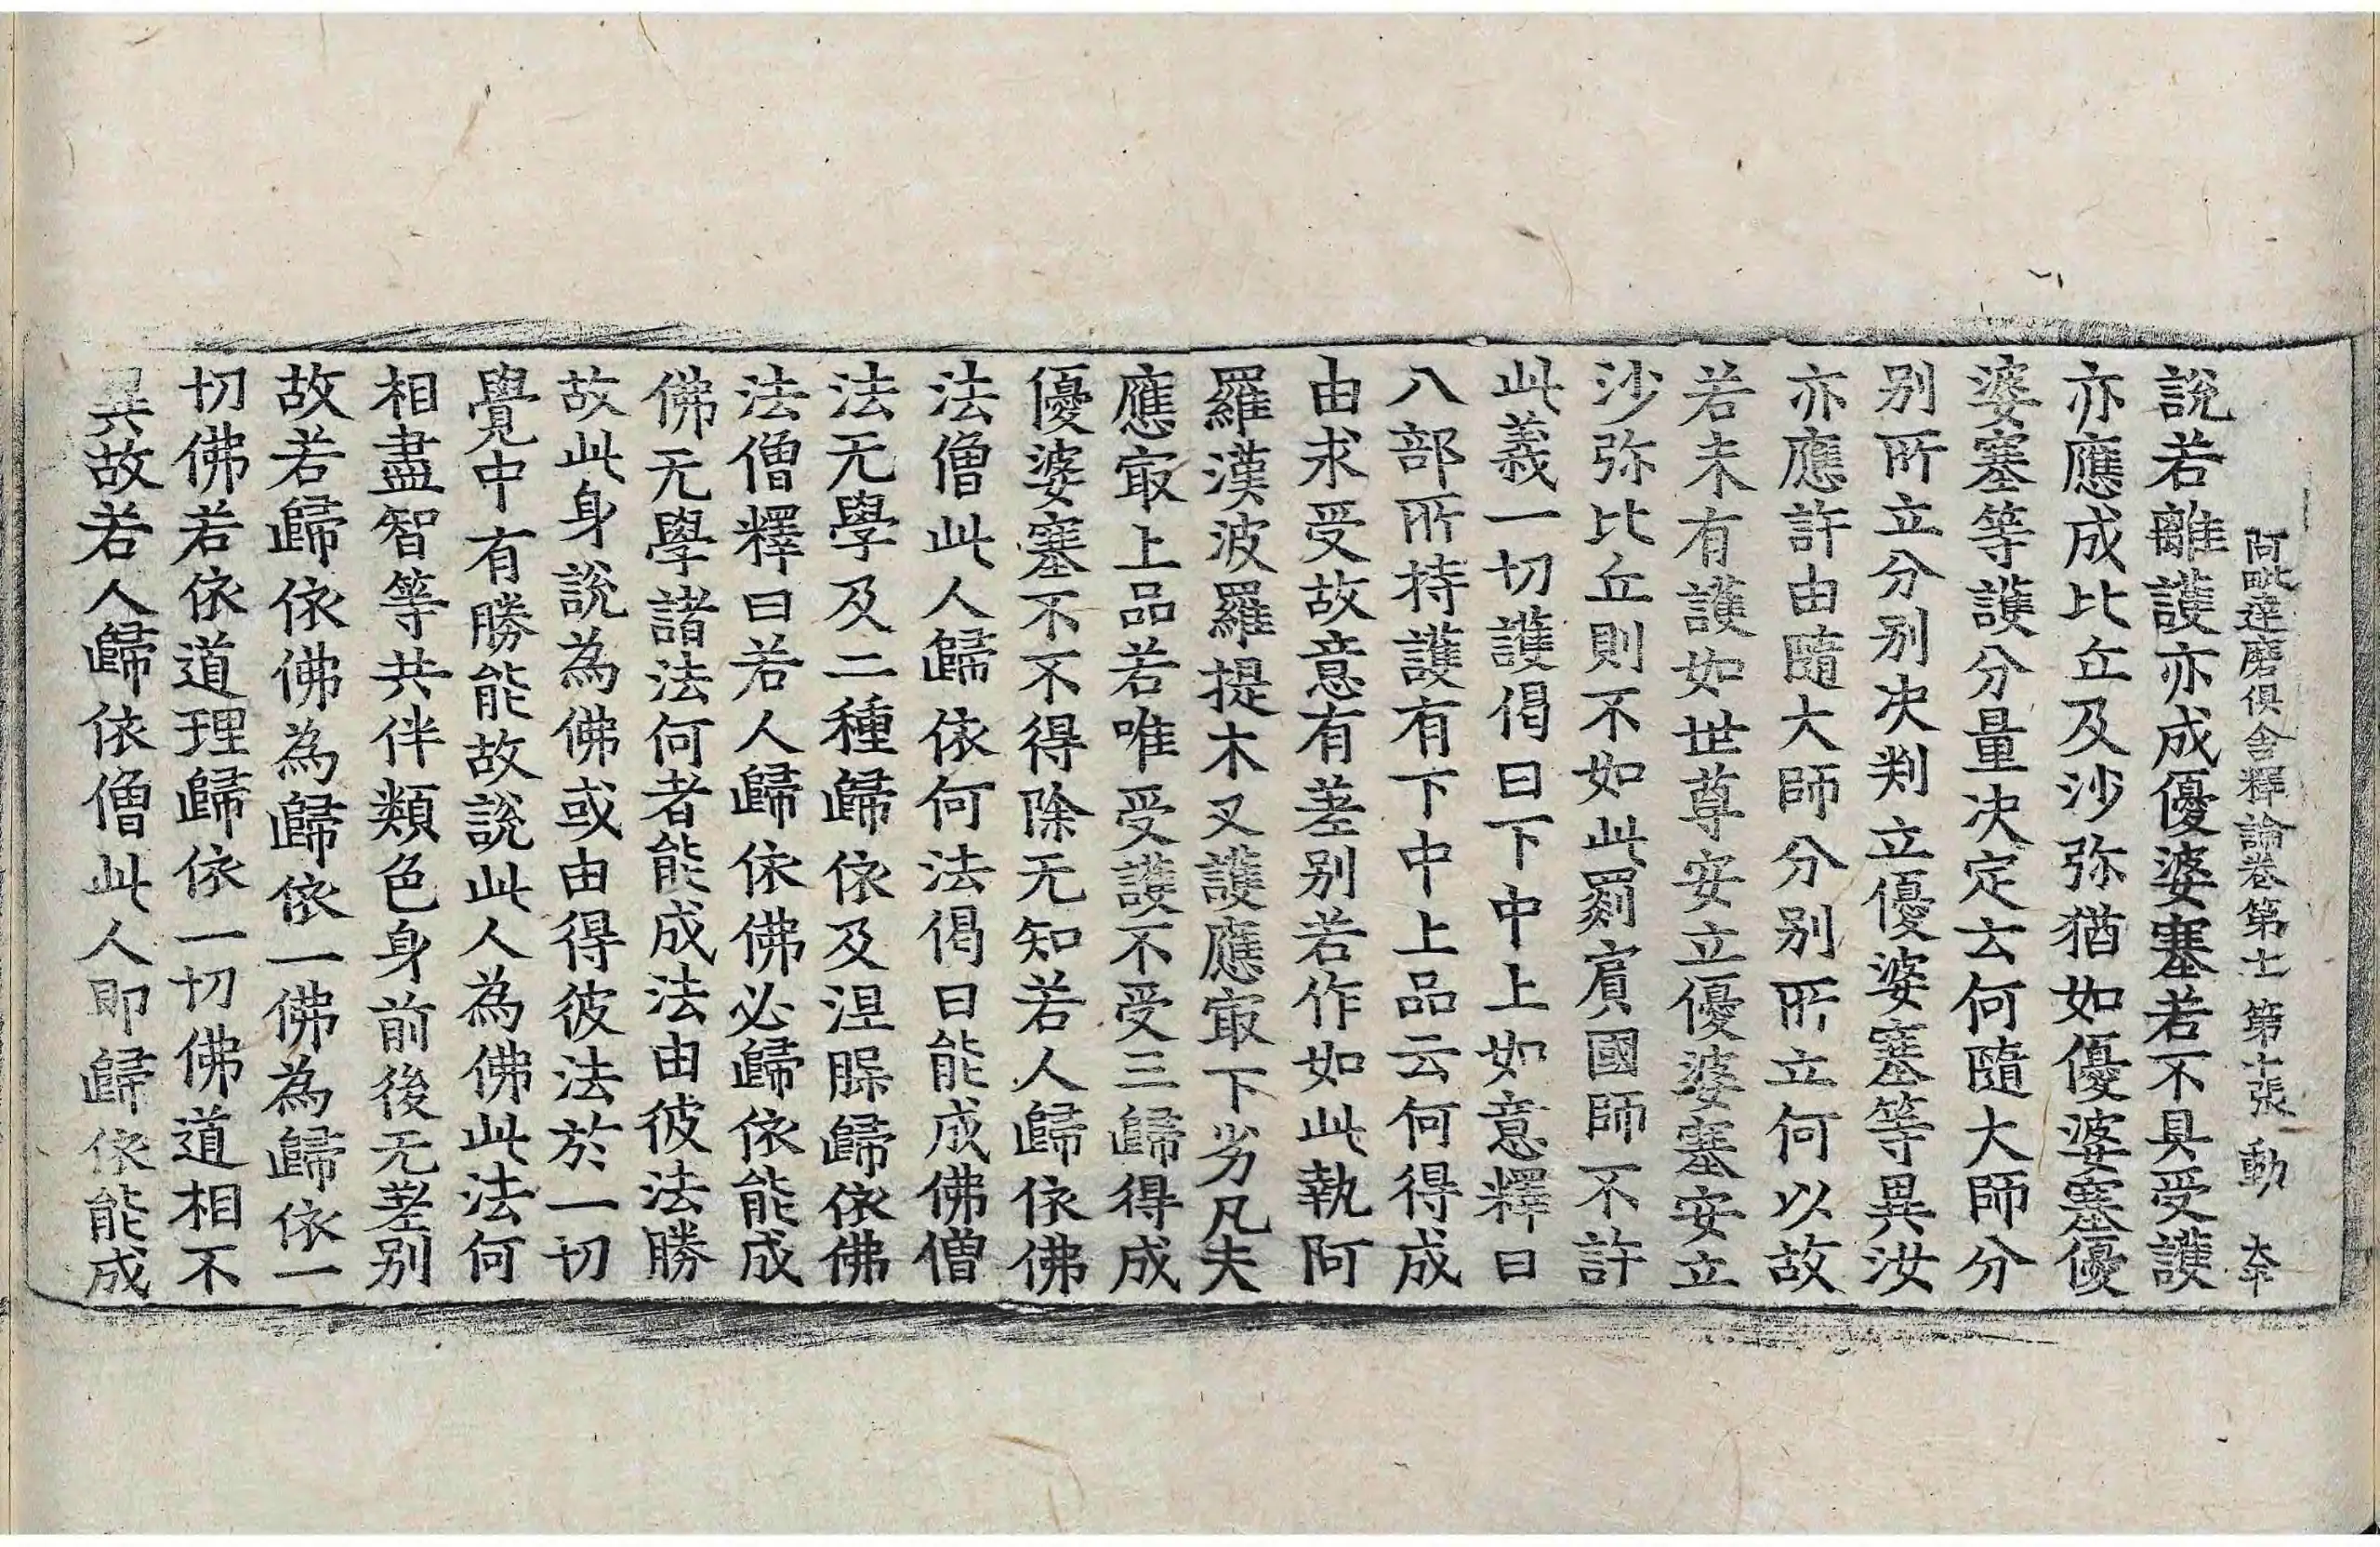 阿毗達磨俱舍釋論卷第十一 第十張 動
說若離護亦成優婆塞若不具受護
亦應成比丘及沙弥猶如優婆塞優
婆塞等護分量决定云何隨大師分
别所立分别决判立優婆塞等異汝
亦應許由隨大師分别所立何以故
若未有護如世尊安立優婆塞安立
沙弥比丘則不如此罽賔國師不許
此義一切護偈曰下中上如意釋曰
八部所持護有下中上品云何得成
由求受故意有差别若作如此執阿
羅漢波羅提木叉護應㝡下劣凡夫
應㝡上品若唯受護不受三歸得成
優婆塞不不得除无知若人歸依佛
法僧此人歸依何法偈曰能成佛僧
法无學及二種歸依及涅槃歸依佛
法僧釋曰若人歸依佛必歸依能成
佛无學諸法何者能成法由彼法勝
故此身說為佛或由得彼法於一切
覺中有勝能故說此人為佛此法何
相盡智等共伴類色身前後无差别
故若歸依佛為歸依一佛為歸依一
切佛若依道理歸依一切佛道相不
異故若人歸依僧此人即歸依能成